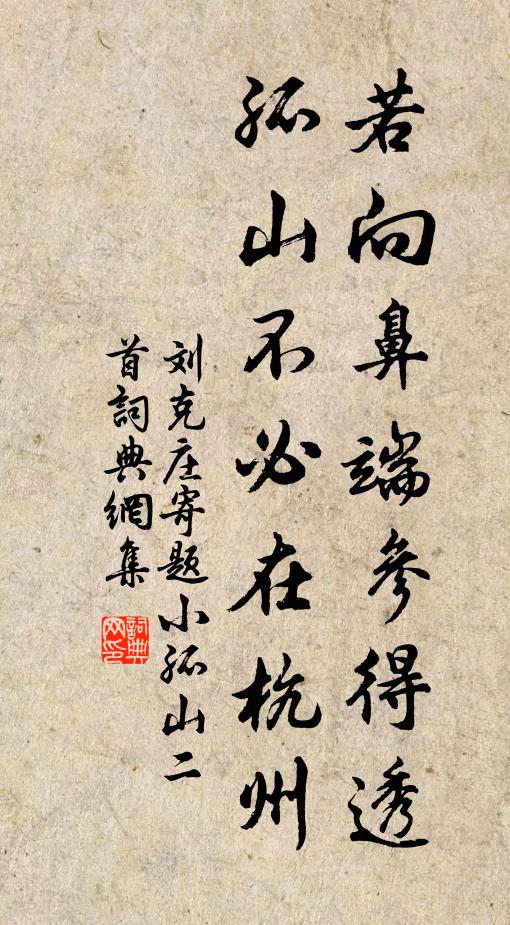 若向鼻端參得透
孤山不必在杭州
刘克庄寄题小孤山二
首詞典網集
詞典网印